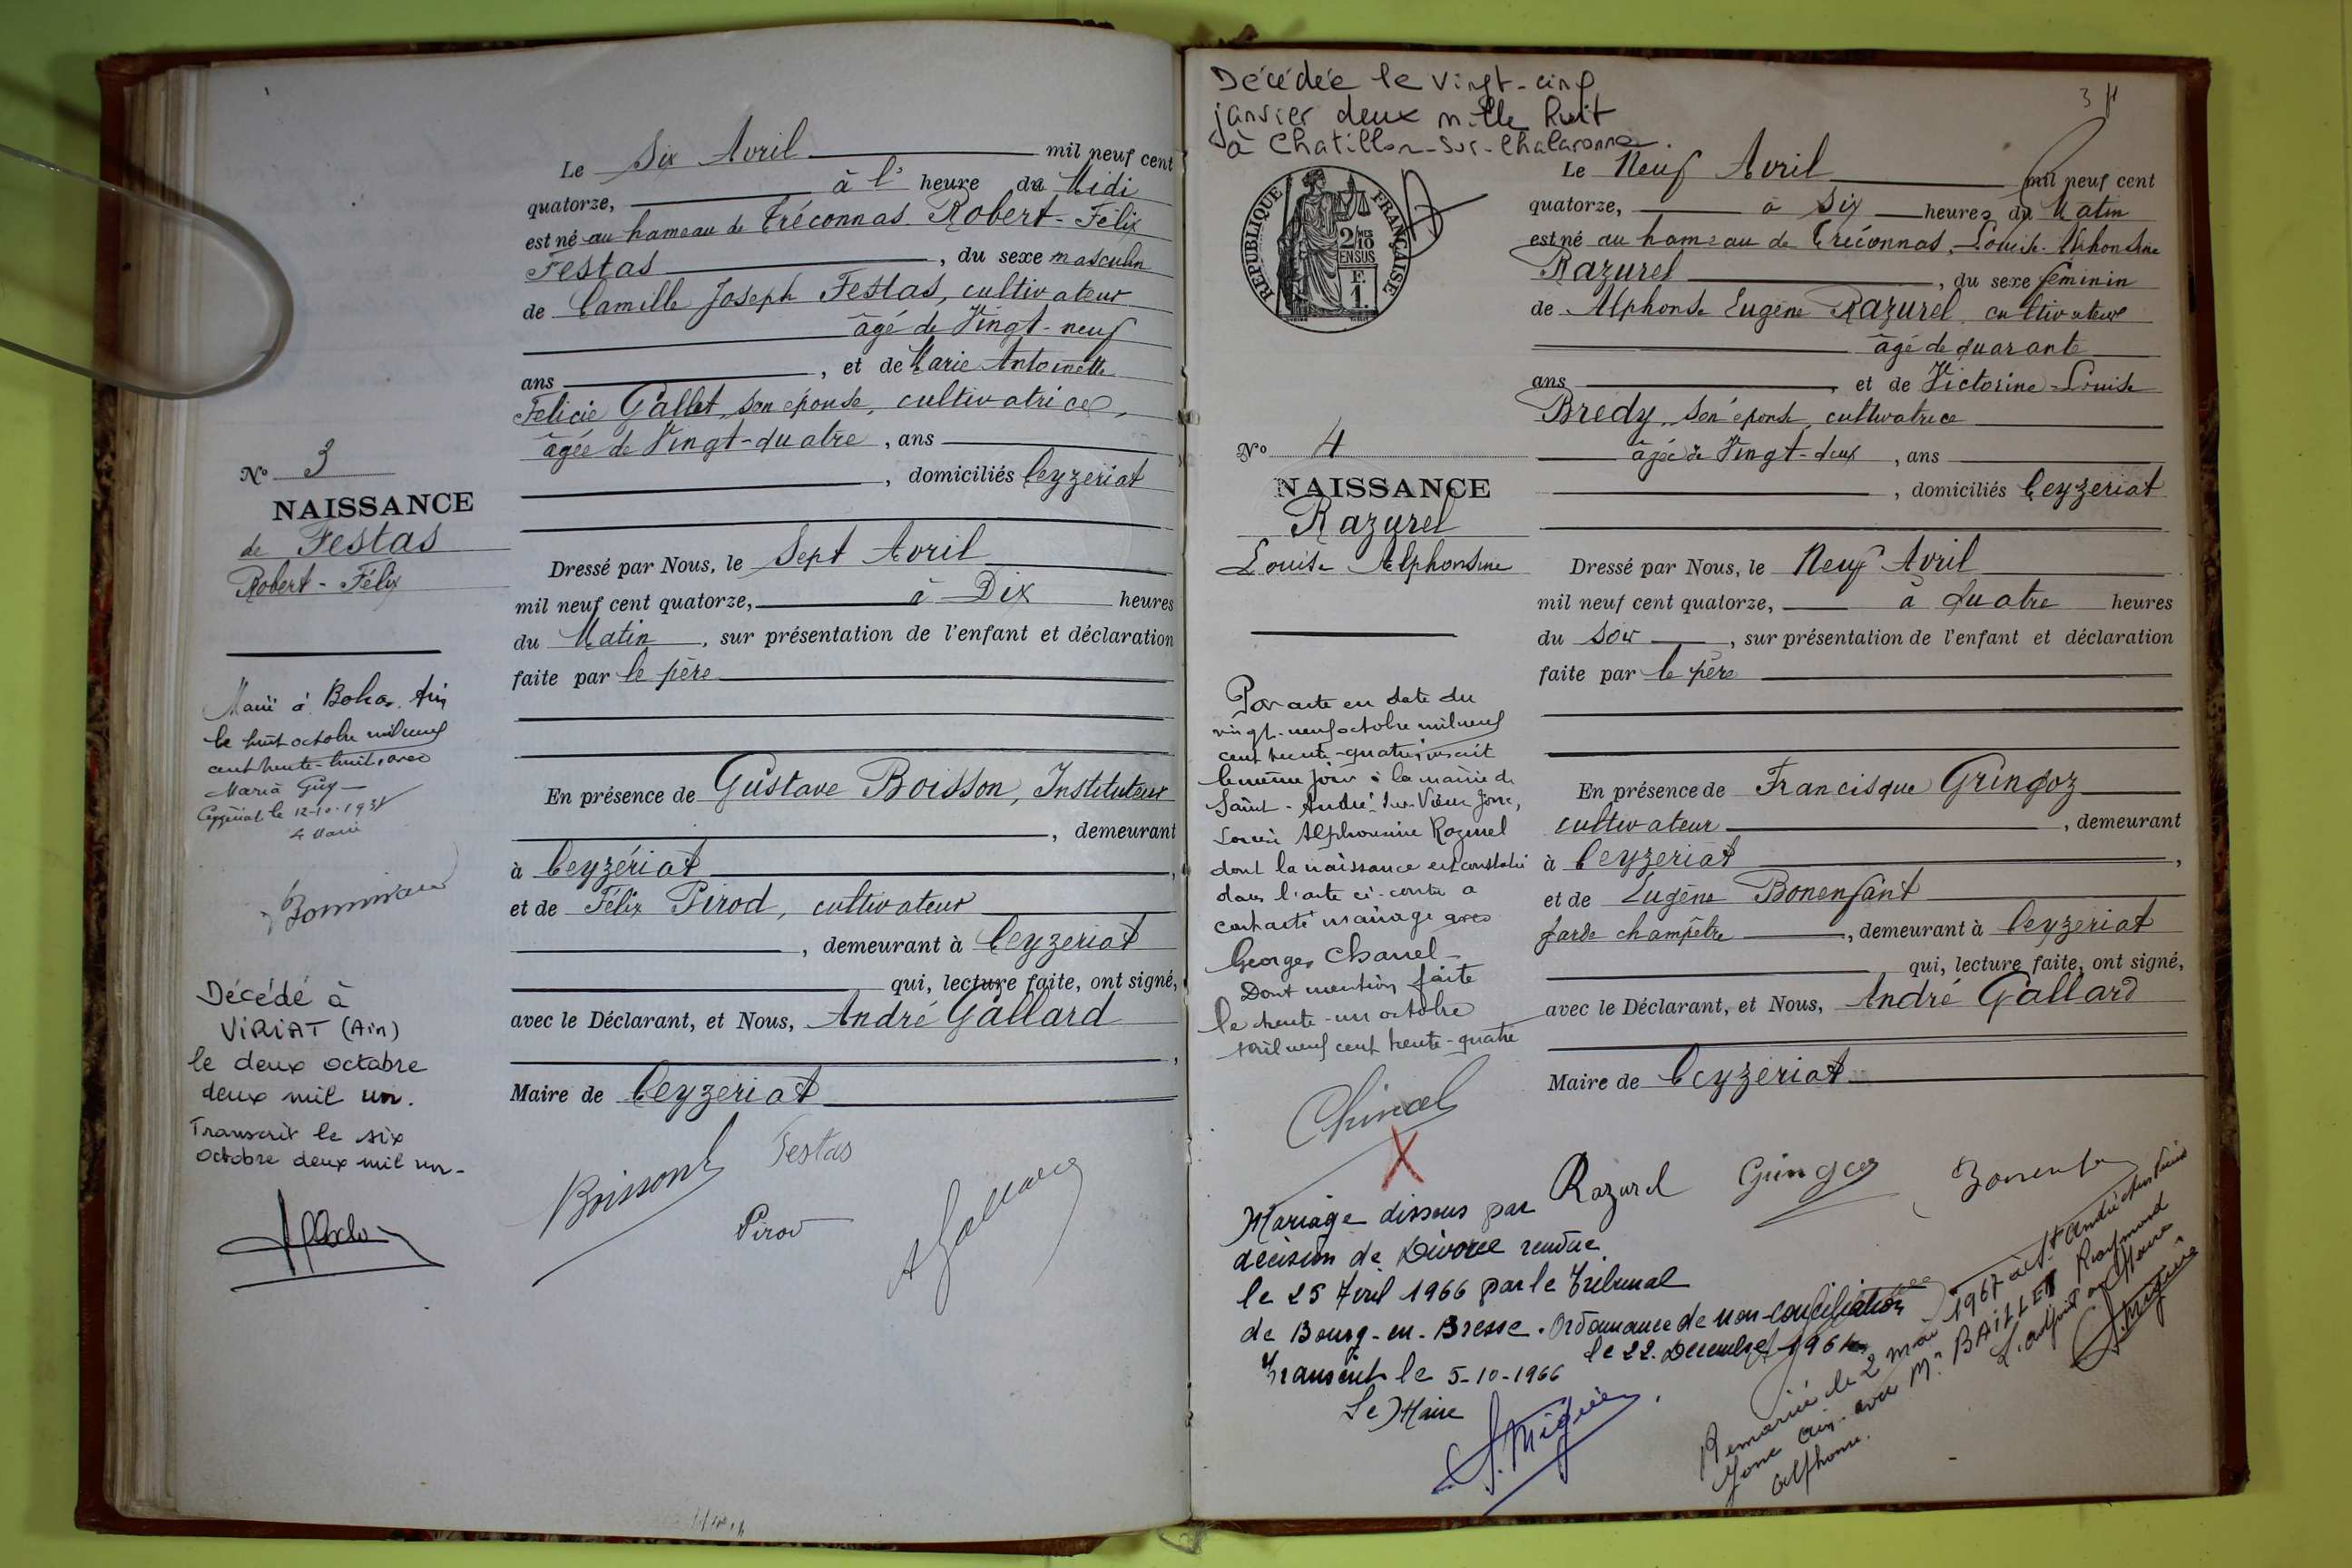 Le Six Avril mil neuf cent
quatorze, à l' heure du Midi
est né au hameau de Tréconnas Robert-Félix
Festas, du sexe masculin
de Camille Joseph Festas, cultivateur
âgé de Vingt-neuf
ans, et de Marie Antoinette
Félicie Gallet, son épouse, cultivatrice,
âgée de Vingt-quatre, ans
, domiciliés Ceyzeriat
Nº 3
NAISSANCE
de Festas
Robert-Félix
Dressé par Nous, le Sept Avril
mil neuf cent quatorze, à Dix heures
du Matin, sur présentation de l'enfant et déclaration
faite par le père
En présence de Gustave Boisson, Instituteur
, demeurant
à Ceyzériat,
et de Félix Pirod, cultivateur
, demeurant à Ceyzeriat
qui, lecture faite, ont signé,
avec le Déclarant, et Nous, André Gallard
,
Maire de Ceyzeriat
Marié à Bohas. Ain
le huit octobre mil neuf
cent trente-huit, avec
Maria Guy
Ceyzeriat le 12-10-1938
Le Maire
Décédé à
VIRIAT (Ain)
le deux octobre
deux mil un.
Transcrit le six
octobre deux mil un-
Boisson
Festas
Pirod
A Gallard
Décédée le vingt-cinq
janvier deux mille huit
à Chatillon-sur-Chalaronne.
RÉPUBLIQUE FRANÇAISE
2 MES
10
EN SUS
F.
1.
Le Neuf Avril mil neuf cent
quatorze, à Six heures du Matin
est né au hameau de Tréconnas, Louise-Alphonsine
Razurel, du sexe féminin
de Alphonse Eugène Razurel, cultivateur
âgé de quarante
ans, et de Victorine-Louise
Bredy, son épouse, cultivatrice
âgée de Vingt-deux, ans
, domiciliés Ceyzeriat
Nº 4
NAISSANCE
Razurel
Louise Alphonsine
Dressé par Nous, le Neuf Avril
mil neuf cent quatorze, à quatre heures
du soir, sur présentation de l'enfant et déclaration
faite par le père
En présence de Francisque Gringoz
cultivateur, demeurant
à Ceyzeriat,
et de Eugène Bonenfant
garde champêtre, demeurant à Ceyzeriat
qui, lecture faite, ont signé,
avec le Déclarant, et Nous, André Gallard
Maire de Ceyzeriat
Par acte en date du
vingt-neuf octobre mil neuf
cent trente-quatre, inscrit
le même jour à la mairie de
Saint-André-sur-Vieux Jonc,
Louise Alphonsine Razurel
dont la naissance est constatée
dans l'acte ci-contre a
contracté mariage avec
Georges Charvel
Dont mention faite
le trente-un octobre
mil neuf cent trente-quatre
Razurel
Gringoz
Bonenfant
Mariage dissous par
décision de Divorce rendue
le 25 Avril 1966 par le Tribunal
de Bourg-en-Bresse. Ordonnance de non-conciliation
le 22 Decembre 1964
Transcrit le 5-10-1966
Le Maire
Remariée le 2 mai 1967 à St André sur Vieux
Jonc Ain. avec Mr BAILLET Raymond
Alphonse.
L'adjoint au Maire